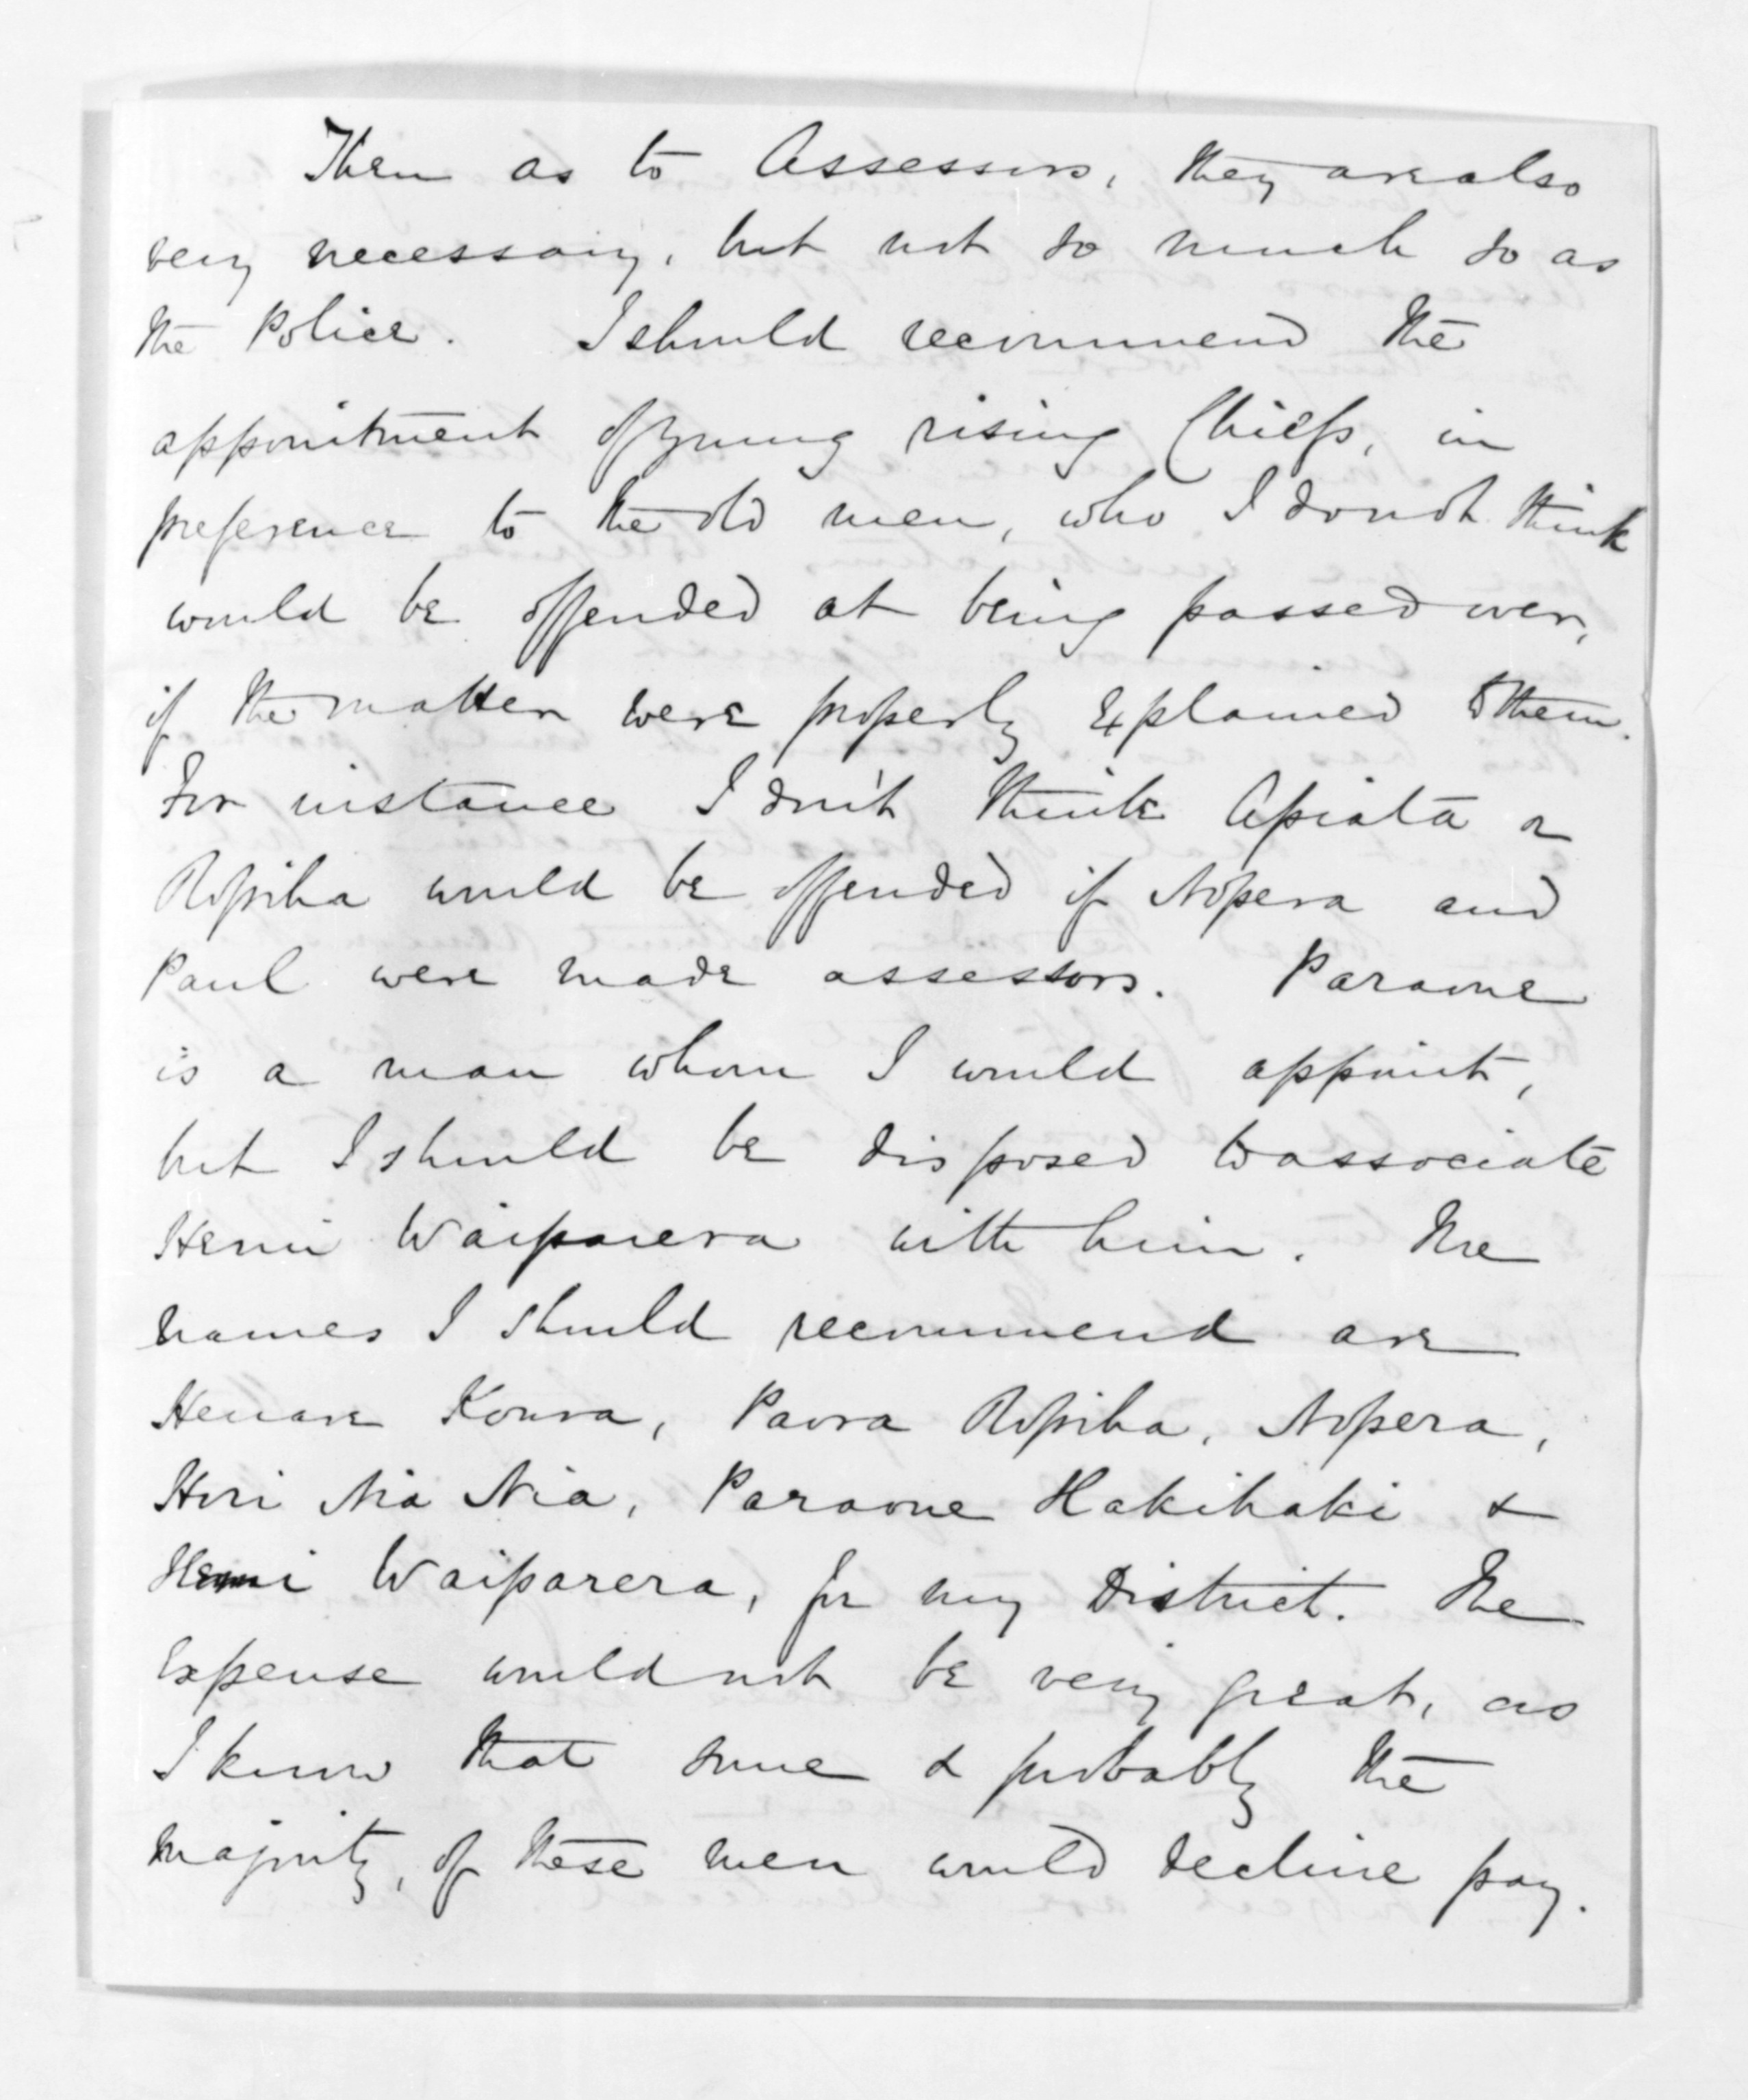 Then as to Assessors, they are also
very necessary, but not so much so as
the Police. I should recommend the
appointment of young rising Chiefs, in
preference to the old men, who I do not think
would be offended at being passed over,
if the matter were properly explained to them.
For instance I don't think Apiata or
Ropiha would be offended if Nopera and
Paul were made assessors. Paraone
is a man whom I would appoint,
but I should be disposed to associate
Henri Waiparera with him. The
names I should recommend are
Henare Koura, Paora Ropiha, Nopera,
Hori Nia Nia, Paraone Hakihaki &
Waiparera, for my District. The
expense would not be very great, as
I know that some & probably the
majority, of these men would decline pay.